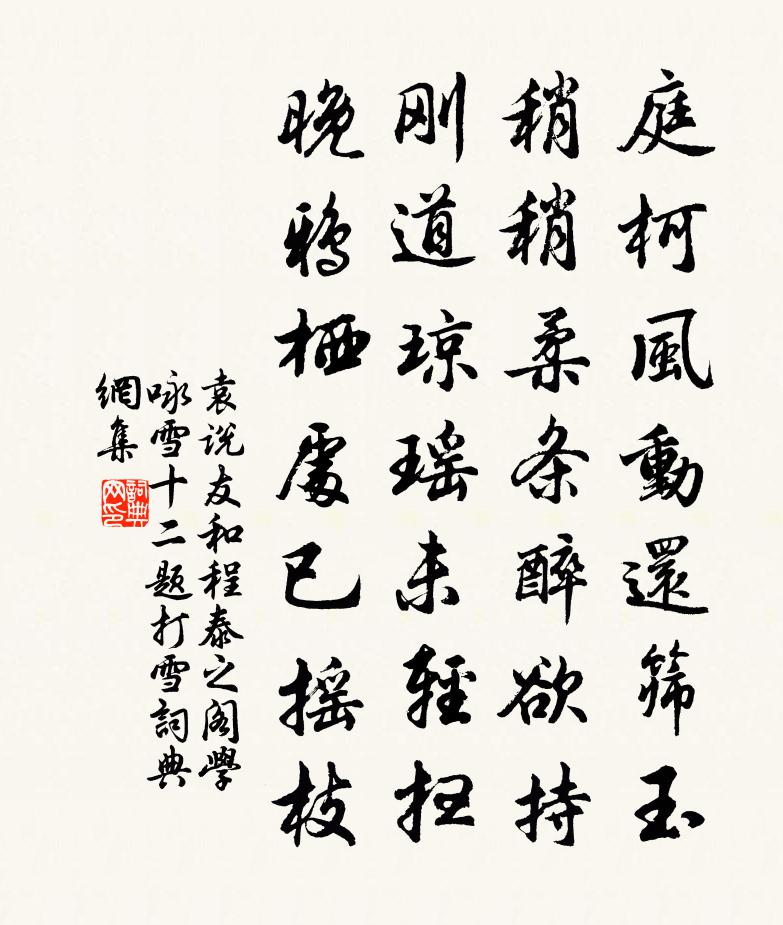 庭柯風動還筛玉
稍稍柔条醉欲持
刚道琼瑶未輕扭
晚鸦栖處已摇枝
袁说友和程泰之阁學
咏雪十二题打雪詞典
網集
詞典
网印